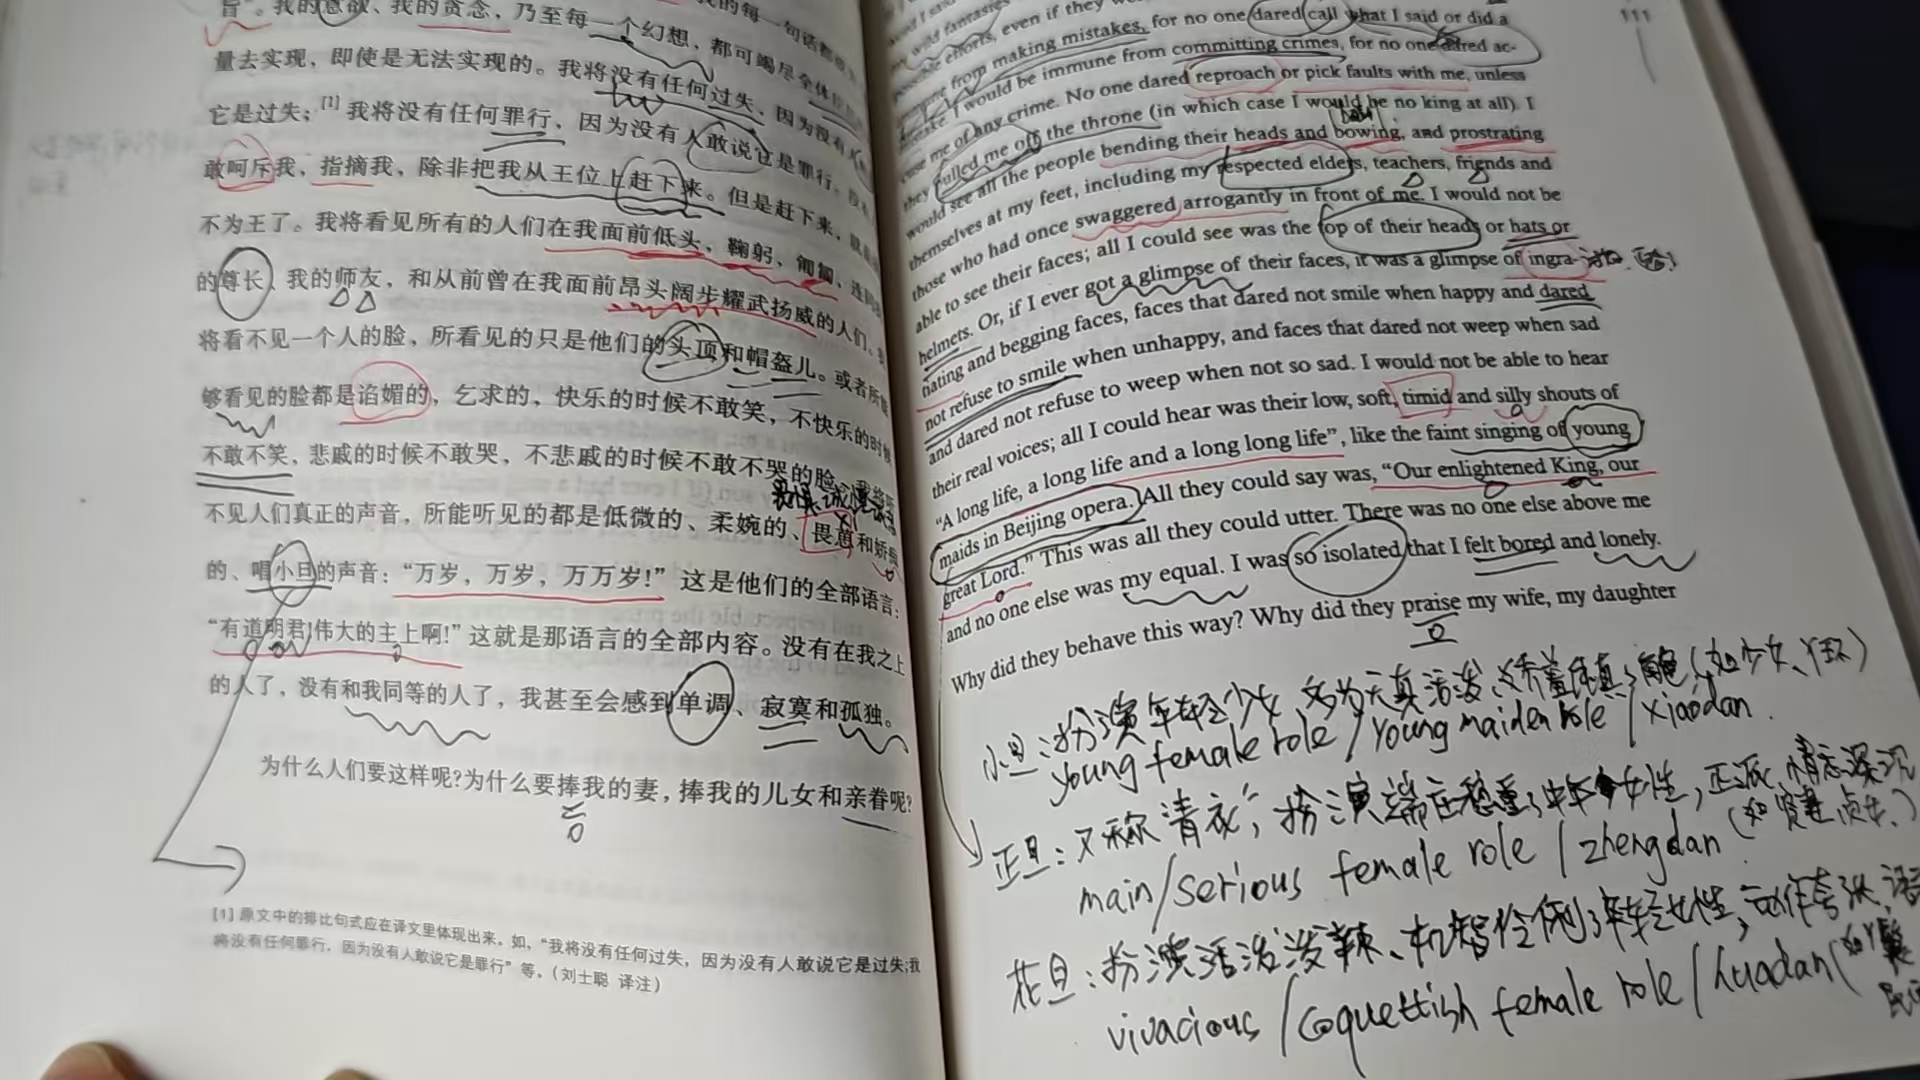 旨”。我的意欲、我的贪念，乃至每一个幻想，都可竭尽全体
量去实现，即使是无法实现的。我将没有任何过失，因为没有人
它是过失；[1] 我将没有任何罪行，因为没有人敢说它是罪行。没有
敢呵斥我，指摘我，除非把我从王位上赶下来。但是赶下来，就
不为王了。我将看见所有的人们在我面前低头，鞠躬，匍匐，连同
的尊长、我的师友，和从前曾在我面前昂头阔步耀武扬威的人们。
将看不见一个人的脸，所看见的只是他们的头顶和帽盔儿。或者所能
够看见的脸都是谄媚的，乞求的，快乐的时候不敢笑，不快乐的时候
不敢不笑，悲戚的时候不敢哭，不悲戚的时候不敢不哭的脸。我将听
不见人们真正的声音，所能听见的都是低微的、柔婉的、畏葸和娇
的、唱小旦的声音：“万岁，万岁，万万岁！”这是他们的全部语言：
“有道明君！伟大的主上啊！”这就是那语言的全部内容。没有在我之上
的人了，没有和我同等的人了，我甚至会感到单调、寂寞和孤独。
为什么人们要这样呢？为什么要捧我的妻，捧我的儿女和亲眷呢？
[1] 原文中的排比句式应在译文里体现出来。如，“我将没有任何过失，因为没有人敢说它是过失；我
将没有任何罪行，因为没有人敢说它是罪行”等。（刘士聪 译注）
111
wild fantasies, even if they
possible efforts, from making mistakes, for no one dared call what I said or did a
I would be immune from committing crimes, for no one dared ac-
cuse me of any crime. No one dared reproach or pick faults with me, unless
they pulled me off the throne (in which case I would be no king at all). I
would see all the people bending their heads and bowing, and prostrating
themselves at my feet, including my respected elders, teachers, friends and
those who had once swaggered arrogantly in front of me. I would not be
able to see their faces; all I could see was the top of their heads or hats or
helmets. Or, if I ever got a glimpse of their faces, it was a glimpse of ingra-
tiating and begging faces, faces that dared not smile when happy and dared
not refuse to smile when unhappy, and faces that dared not weep when sad
and dared not refuse to weep when not so sad. I would not be able to hear
their real voices; all I could hear was their low, soft, timid and silly shouts of
“A long life, a long life and a long long life”, like the faint singing of young
maids in Beijing opera. All they could say was, “Our enlightened King, our
great Lord.” This was all they could utter. There was no one else above me
and no one else was my equal. I was so isolated that I felt bored and lonely.
Why did they behave this way? Why did they praise my wife, my daughter
小旦：扮演年轻少女，多为天真活泼、娇羞 角色（如少女、丫环）
young female role / young maiden role / xiaodan.
正旦：又称“青衣”，扮演端庄稳重 中年女性，正派，情志深沉
main/serious female role / zhengdan
花旦：扮演活泼泼辣、机智伶俐 年轻女性，动作夸张，
vivacious / coquettish female role / huadan